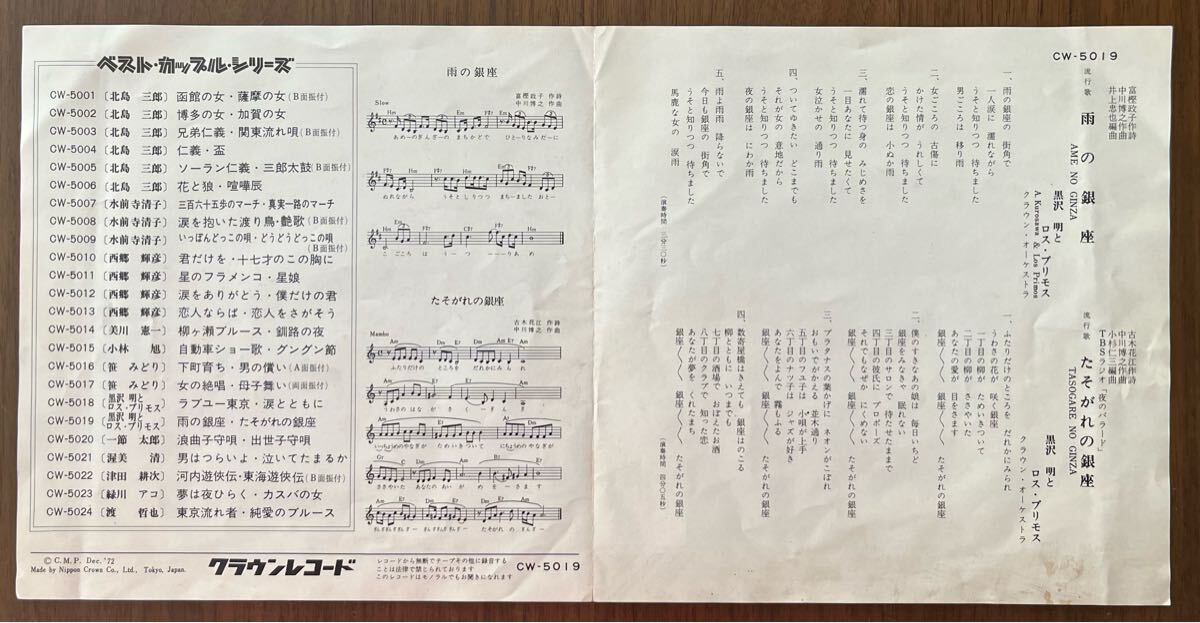 ベスト・カップル・シリーズ
CW-5001〔北島 三郎〕函館の女・薩摩の女(B面振付)
CW-5002〔北島 三郎〕博多の女・加賀の女
CW-5003〔北島 三郎〕兄弟仁義・関東流れ唄(B面振付)
CW-5004〔北島 三郎〕仁義・盃
CW-5005〔北島 三郎〕ソーラン仁義・三郎太鼓(B面振付)
CW-5006〔北島 三郎〕花と狼・喧嘩辰
CW-5007〔水前寺清子〕三百六十五歩のマーチ・真実一路のマーチ
CW-5008〔水前寺清子〕涙を抱いた渡り鳥・艶歌(B面振付)
CW-5009〔水前寺清子〕いっぽんどっこの唄・どうどうどっこの唄(B面振付)
CW-5010〔西郷 輝彦〕君だけを・十七才のこの胸に
CW-5011〔西郷 輝彦〕星のフラメンコ・星娘
CW-5012〔西郷 輝彦〕涙をありがとう・僕だけの君
CW-5013〔西郷 輝彦〕恋人ならば・恋人をさがそう
CW-5014〔美川 憲一〕柳ヶ瀬ブルース・釧路の夜
CW-5015〔小林 旭〕自動車ショー歌・グングン節
CW-5016〔笹 みどり〕下町育ち・男の償い(A面振付)
CW-5017〔笹 みどり〕女の絶唱・母子舞い(両面振付)
CW-5018〔黒沢 明とロス・プリモス〕ラブユー東京・涙とともに
CW-5019〔黒沢 明とロス・プリモス〕雨の銀座・たそがれの銀座
CW-5020〔一節 太郎〕浪曲子守唄・出世子守唄
CW-5021〔渥美 清〕男はつらいよ・泣いてたまるか
CW-5022〔津田 耕次〕河内遊侠伝・東海遊侠伝(B面振付)
CW-5023〔緑川 アコ〕夢は夜ひらく・カスバの女
CW-5024〔渡 哲也〕東京流れ者・純愛のブルース
Ⓒ C.M.P. Dec. '72
Made by Nippon Crown Co., Ltd., Tokyo, Japan.
クラウンレコード
雨の銀座
富樫政子 作詩
中川博之 作曲
Slow
あめーのぎんざーの まちかどで ひとーりなみだにー
ぬれながら うそとしりつつ まちーましたおとー
こごころは うーつーーーりあめ
たそがれの銀座
古木花江 作詩
中川博之 作曲
Mambo
ふたりだけの ところを だれかにみられ
うわさのはな がさく ぎんざ
いっちょうめのやなぎが ためいきついて にちょうめのやなぎが
ささやいた あなたのあいが めをーさます
ぎんざぎんざー ぎんざぎんざー ぎんざぎんざー たそがれの ぎんざー
レコードから無断でテープその他に録音する
ことは法律で禁じられております
このレコードはモノラルでもお聞きになれます
CW-5019
CW-5019
流行歌
雨の銀座
AME NO GINZA
富樫政子作詩
中川博之作曲
井上忠也編曲
黒沢 明と
ロス・プリモス
A.Kurosawa & Los Primos
クラウン・オーケストラ
一、雨の銀座の 街角で
一人涙に 濡れながら
うそと知りつつ 待ちました
男ごころは 移り雨
二、女ごころの 古傷に
かけた情が うれしくて
うそと知りつつ 待ちました
恋の銀座は 小ぬか雨
三、濡れて待つ身の みじめさを
一目あなたに 見せたくて
うそと知りつつ 待ちました
女泣かせの 通り雨
四、ついてゆきたい どこまでも
それが女の 意地だから
うそと知りつつ 待ちました
夜の銀座は にわか雨
五、雨よ雨雨 降らないで
今日も銀座の 街角で
うそと知りつつ 待ちました
馬鹿な女の 涙雨
(演奏時間 三分三〇秒)
流行歌
たそがれの銀座
TASOGARE NO GINZA
古木花江作詩
中川博之作曲
小杉仁三編曲
TBSラジオ「夜のバラード」
黒沢 明と
ロス・プリモス
クラウン・オーケストラ
一、ふたりだけのところを だれかにみられ
うわさの花が 咲く銀座
一丁目の柳が ためいきついて
二丁目の柳が ささやいた
あなたの愛が 目をさます
銀座〱 銀座〱 銀座〱 たそがれの銀座
二、僕のすきなあの娘は 毎日いちど
銀座をみなきで 眠れない
三丁目のサロンで 待たせたままで
四丁目の彼氏に プロポーズ
それでもなぜか にくめない
銀座〱 銀座〱 銀座〱 たそがれの銀座
三、プラタナスの葉かげに ネオンがこぼれ
おもいでがかえる 並木通り
五丁目のフユ子は 小唄が上手
六丁目のナツ子は ジャズが好き
あなたをよんで 霧もふる
銀座〱 銀座〱 銀座〱 たそがれの銀座
四、数寄屋橋はきえても 銀座はのこる
柳とともに いつまでも
七丁目の酒場で おぼえたお酒
八丁目のクラブで 知った恋
あなたが夢を くれたまち
銀座〱 銀座〱 銀座〱 たそがれの銀座
(演奏時間 四分〇五秒)